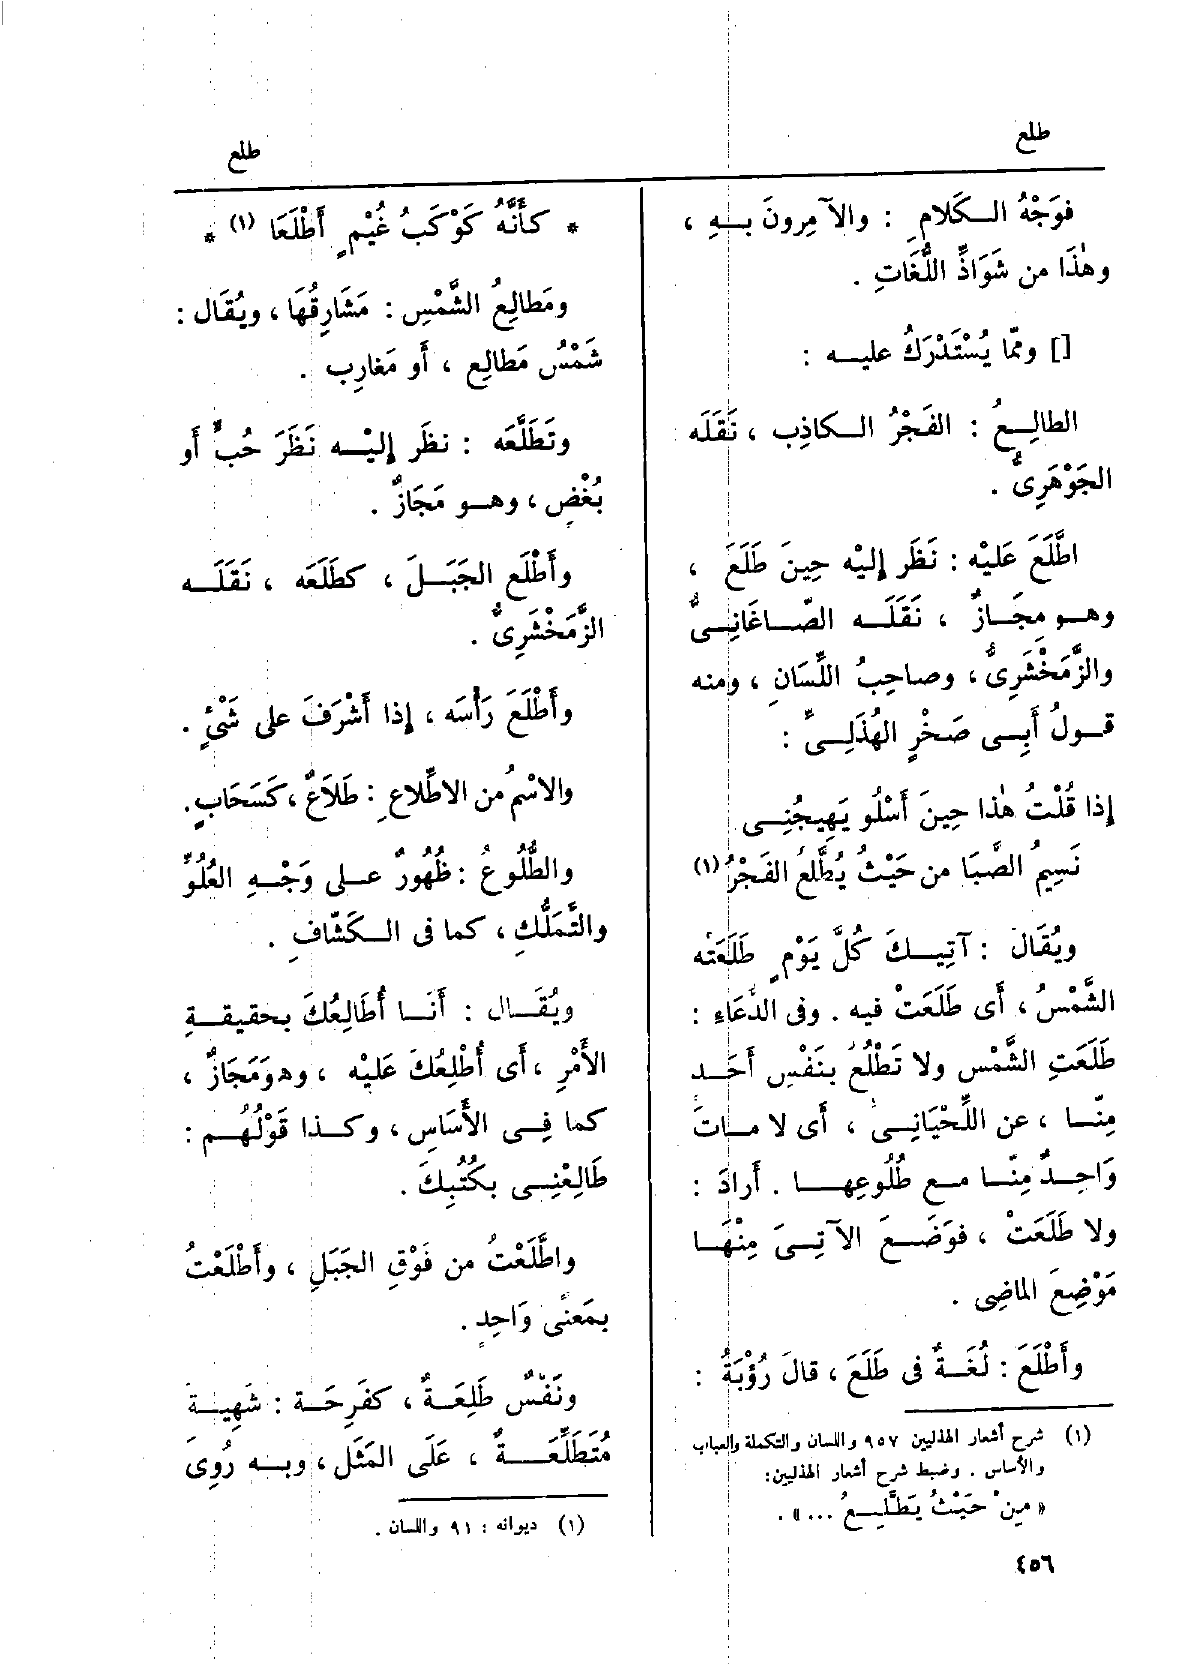 طلع
طلع
فوَجْهُ الكَلامِ : والآمِرونَ بِهِ ،
وهٰذَا من شَوَاذِّ اللُّغَاتِ .
[] وممّا يُسْتَدْرَكُ عليه :
الطالِعُ : الفَجْرُ الكاذِب ، نَقَلَه
الجَوْهَرِىُّ .
اطَّلَعَ عَلَيْه : نَظَر إِليْه حِينَ طَلَعَ ،
وهو مجَازٌ ، نَقَلَه الصّاغَانِىُّ
والزَّمَخْشَرِىُّ ، وصاحِبُ اللِّسَانِ ، ومنه
قولُ أَبِى صَخْرٍ الهُذَلِىِّ :
إِذا قُلْتُ هٰذا حِينَ أَسْلُو يَهِيجُنِى
نَسِيمُ الصَّبَا من حَيْثُ يُطَّلَعُ الفَجْرُ (١)
ويُقَالَ : آتِيكَ كُلَّ يَوْمٍ طَلَعَتْه
الشَّمْسُ ، أَى طَلَعَتْ فيه . وفى الدُّعَاءِ :
طَلَعَتِ الشَّمْس ولا تَطْلُعُ بنَفْسِ أَحَد
مِنّا ، عن اللِّحْيَانِىِّ ، أَى لا ماتَ
وَاحِدٌ مِنّا مع طُلُوعِها . أَرادَ :
ولا طَلَعَتْ ، فوَضَعَ الآتِىَ مِنْهَا
مَوْضِعَ الماضِى .
وأَطْلَعَ : لُغَةٌ فى طَلَعَ ، قالَ رُؤْبَةُ :
(١) شرح أشعار الهذليين ٩٥٧ واللسان والتكملة والعباب
والأساس . وضبط شرح أشعار الهذليين:
« مِنْ حَيْثُ يَطَّلِعُ ... » .
* كأَنَّهُ كَوْكَبُ غُيْمٍ أَطْلَعَا (١) *
ومَطالِعُ الشَّمْسِ : مَشَارِقُهَا ، ويُقَال :
شَمْسُ مَطالِع ، أَو مَغارِب .
وتَطَلَّعَه : نظَر إِليْه نَظَرَ حُبٍّ أَو
بُغْضٍ ، وهو مَجَازٌ .
وأَطْلَع الجَبَلَ ، كطَلَعَه ، نَقَلَه
الزَّمَخْشَرِىُّ .
وأَطْلَعَ رَأْسَه ، إِذا أَشْرَفَ على شَىْءٍ .
والاسْمُ من الاطِّلاعِ : طَلَاعٌ ، كَسَحَابٍ.
والطُّلُوعُ : ظُهُورٌ على وَجْهِ العُلُوِّ
والتَّمَلُّكِ ، كما فى الكَشّافِ .
ويُقَال : أَنَا أُطَالِعُكَ بحقيقةِ
الأَمْرِ ، أَى أُطْلِعُكَ عَلَيْه ، وهو مَجَازٌ ،
كما فِى الأَسَاسِ ، وكذا قَوْلُهُم :
طَالِعْنِى بكُتُبِكَ .
واطَّلَعْتُ من فَوْقِ الجَبَلِ ، وأَطْلَعْتُ
بمَعنًى وَاحِدٍ .
ونَفْسٌ طَلِعَةٌ ، كفَرِحَة : شَهِيَةٌ
مُتَطَلِّعَةٌ ، عَلَى المَثَل ، وبه رُوِىَ
(١) ديوانه : ٩١ واللسان .
٤٥٦